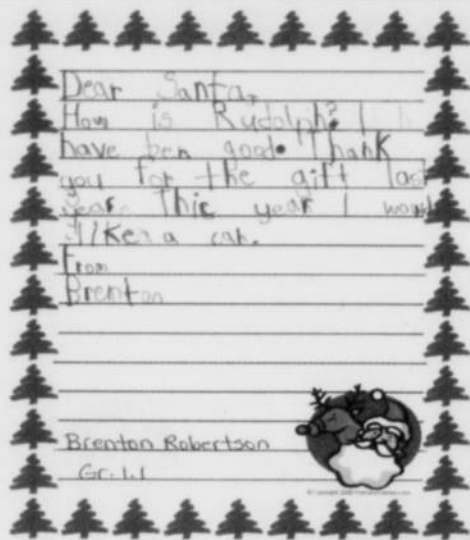 Dear Santa,
How is Rudolph? I
have ben good. Thank
you for the gift last
year. This year I would
like a
From
Brenton
Brenton Robertson
Gr. 1.1